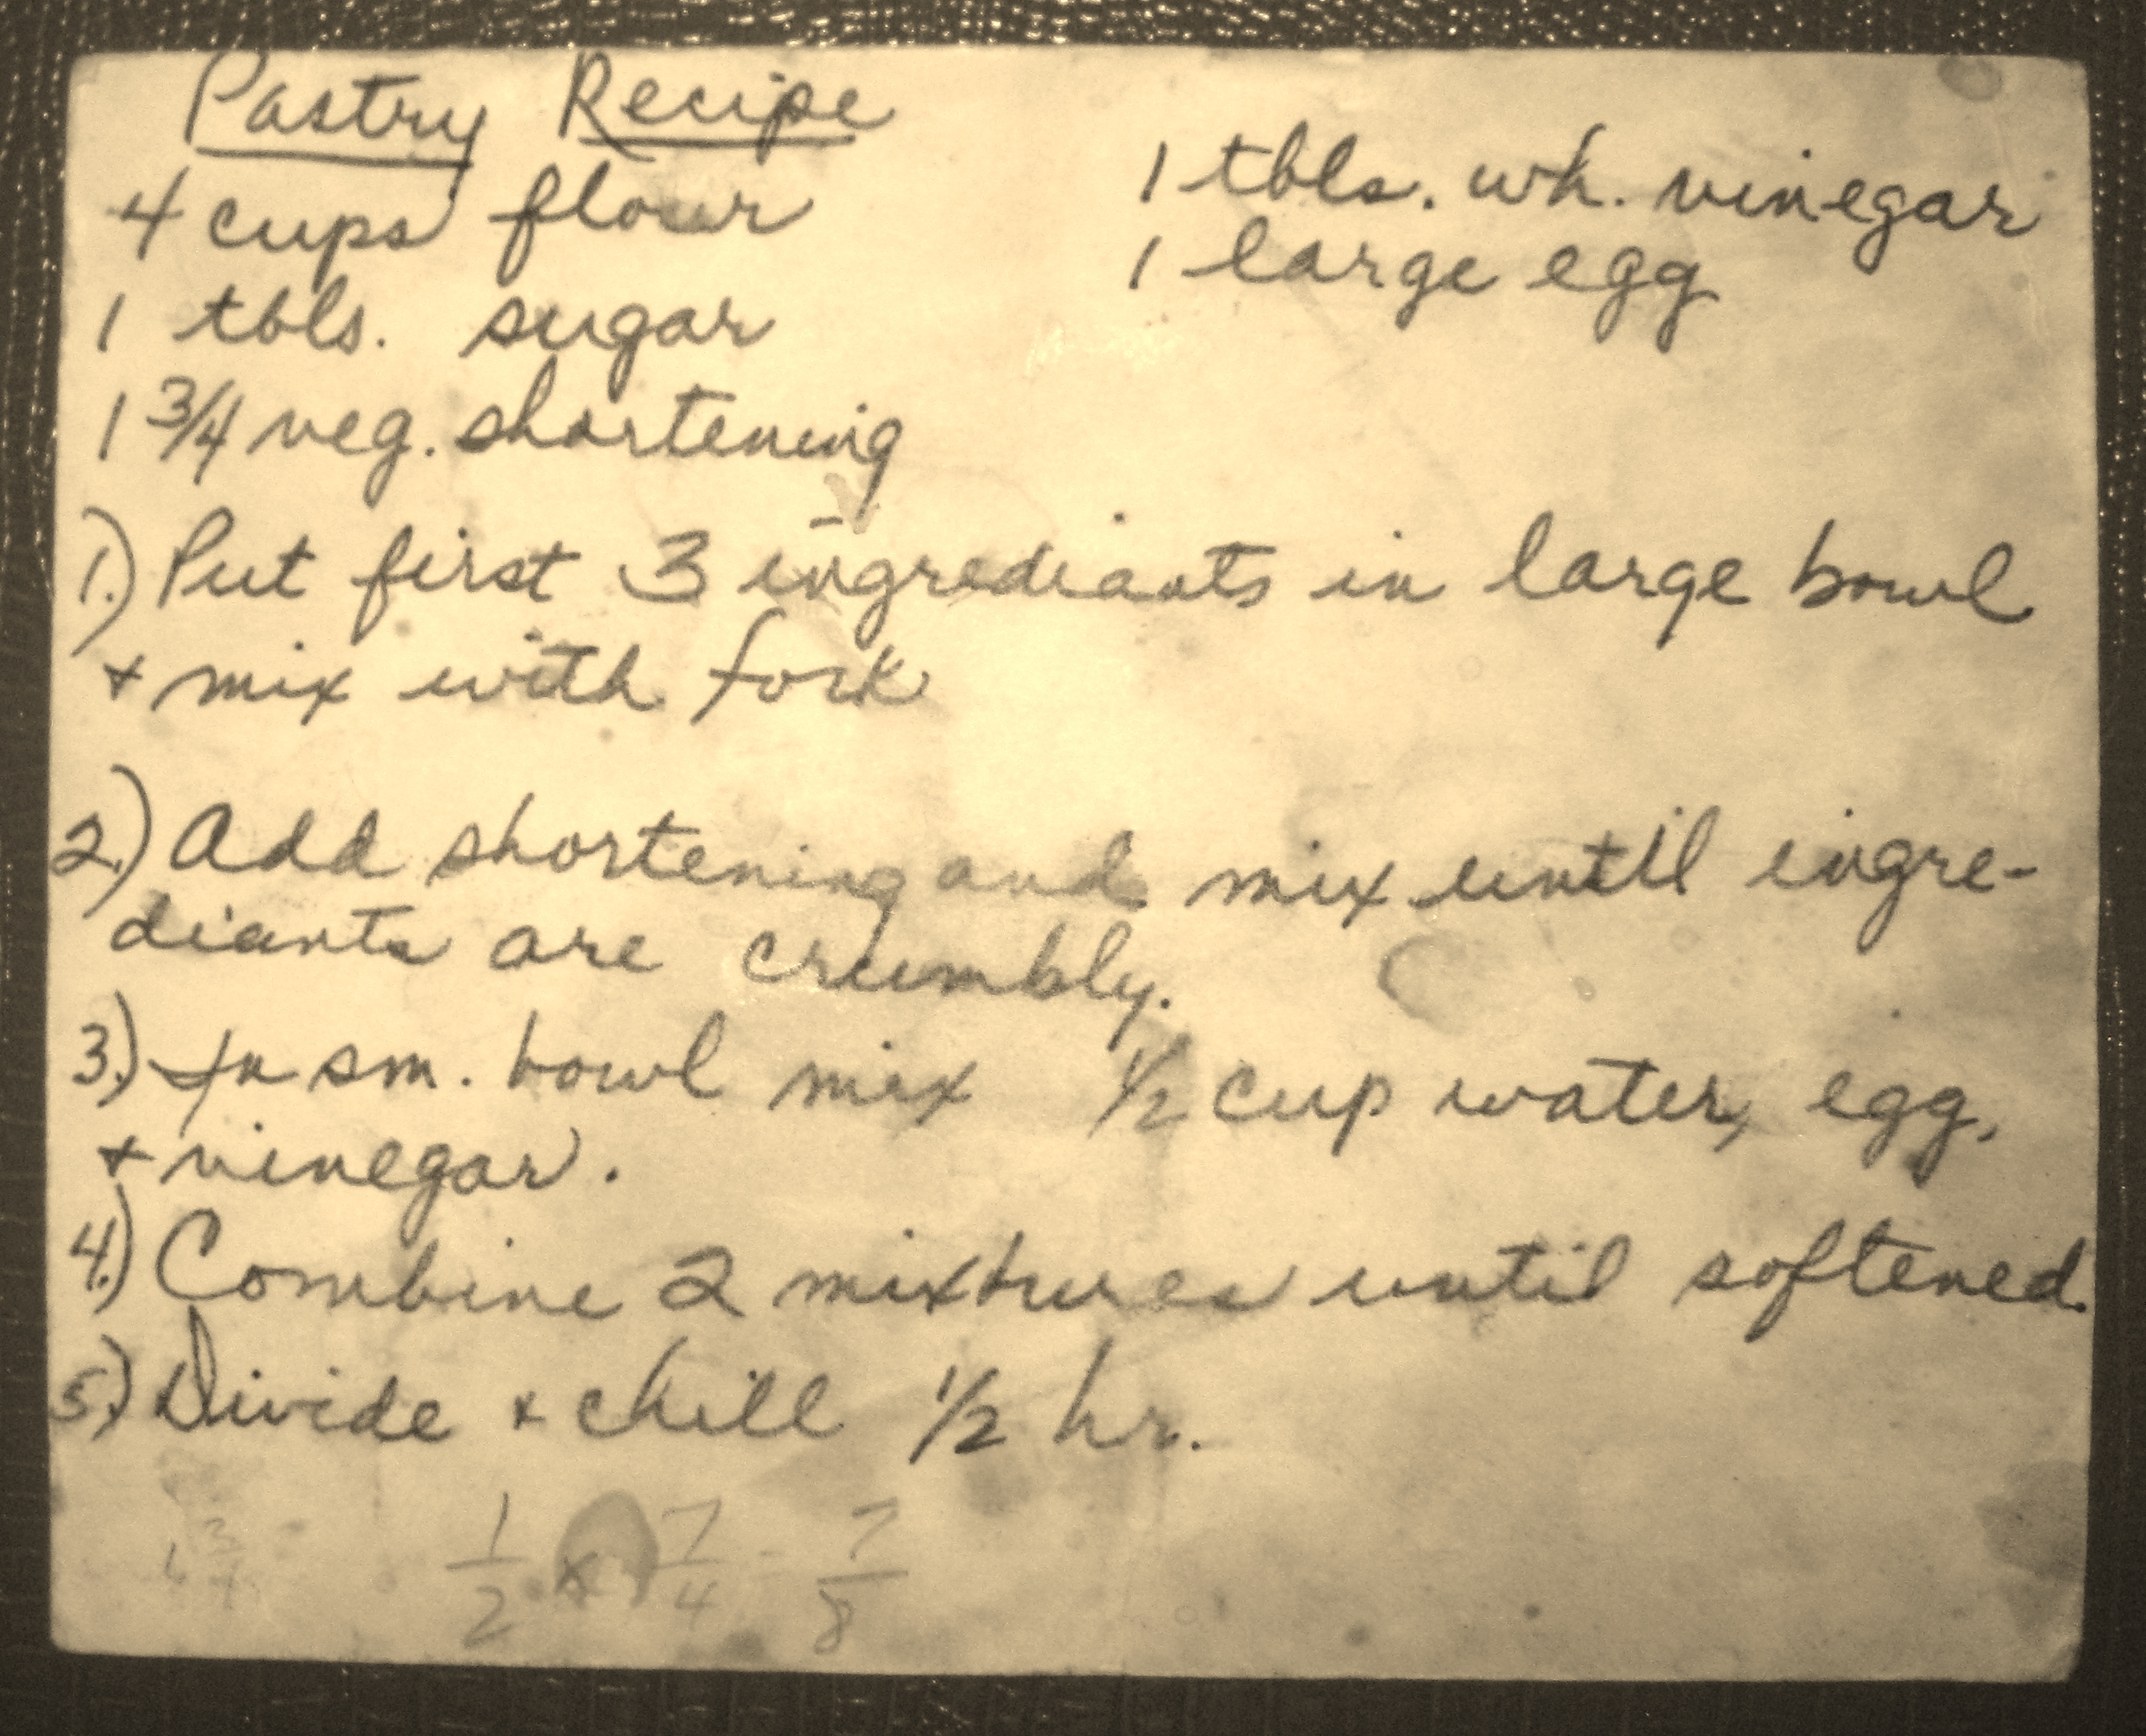 Pastry Recipe
4 cups flour
1 tbls. sugar
1 3/4 veg. shortening
1 tbls. wh. vinegar
1 large egg
1.) Put first 3 ingrediants in large bowl
+ mix with fork
2.) Add shortening and mix until ingre-
diants are crumbly.
3.) In sm. bowl mix 1/2 cup water, egg,
+ vinegar.
4.) Combine 2 mixtures until softened.
5.) Divide + chill 1/2 hr.
1 3/4 1/2 x 7/4 = 7/8